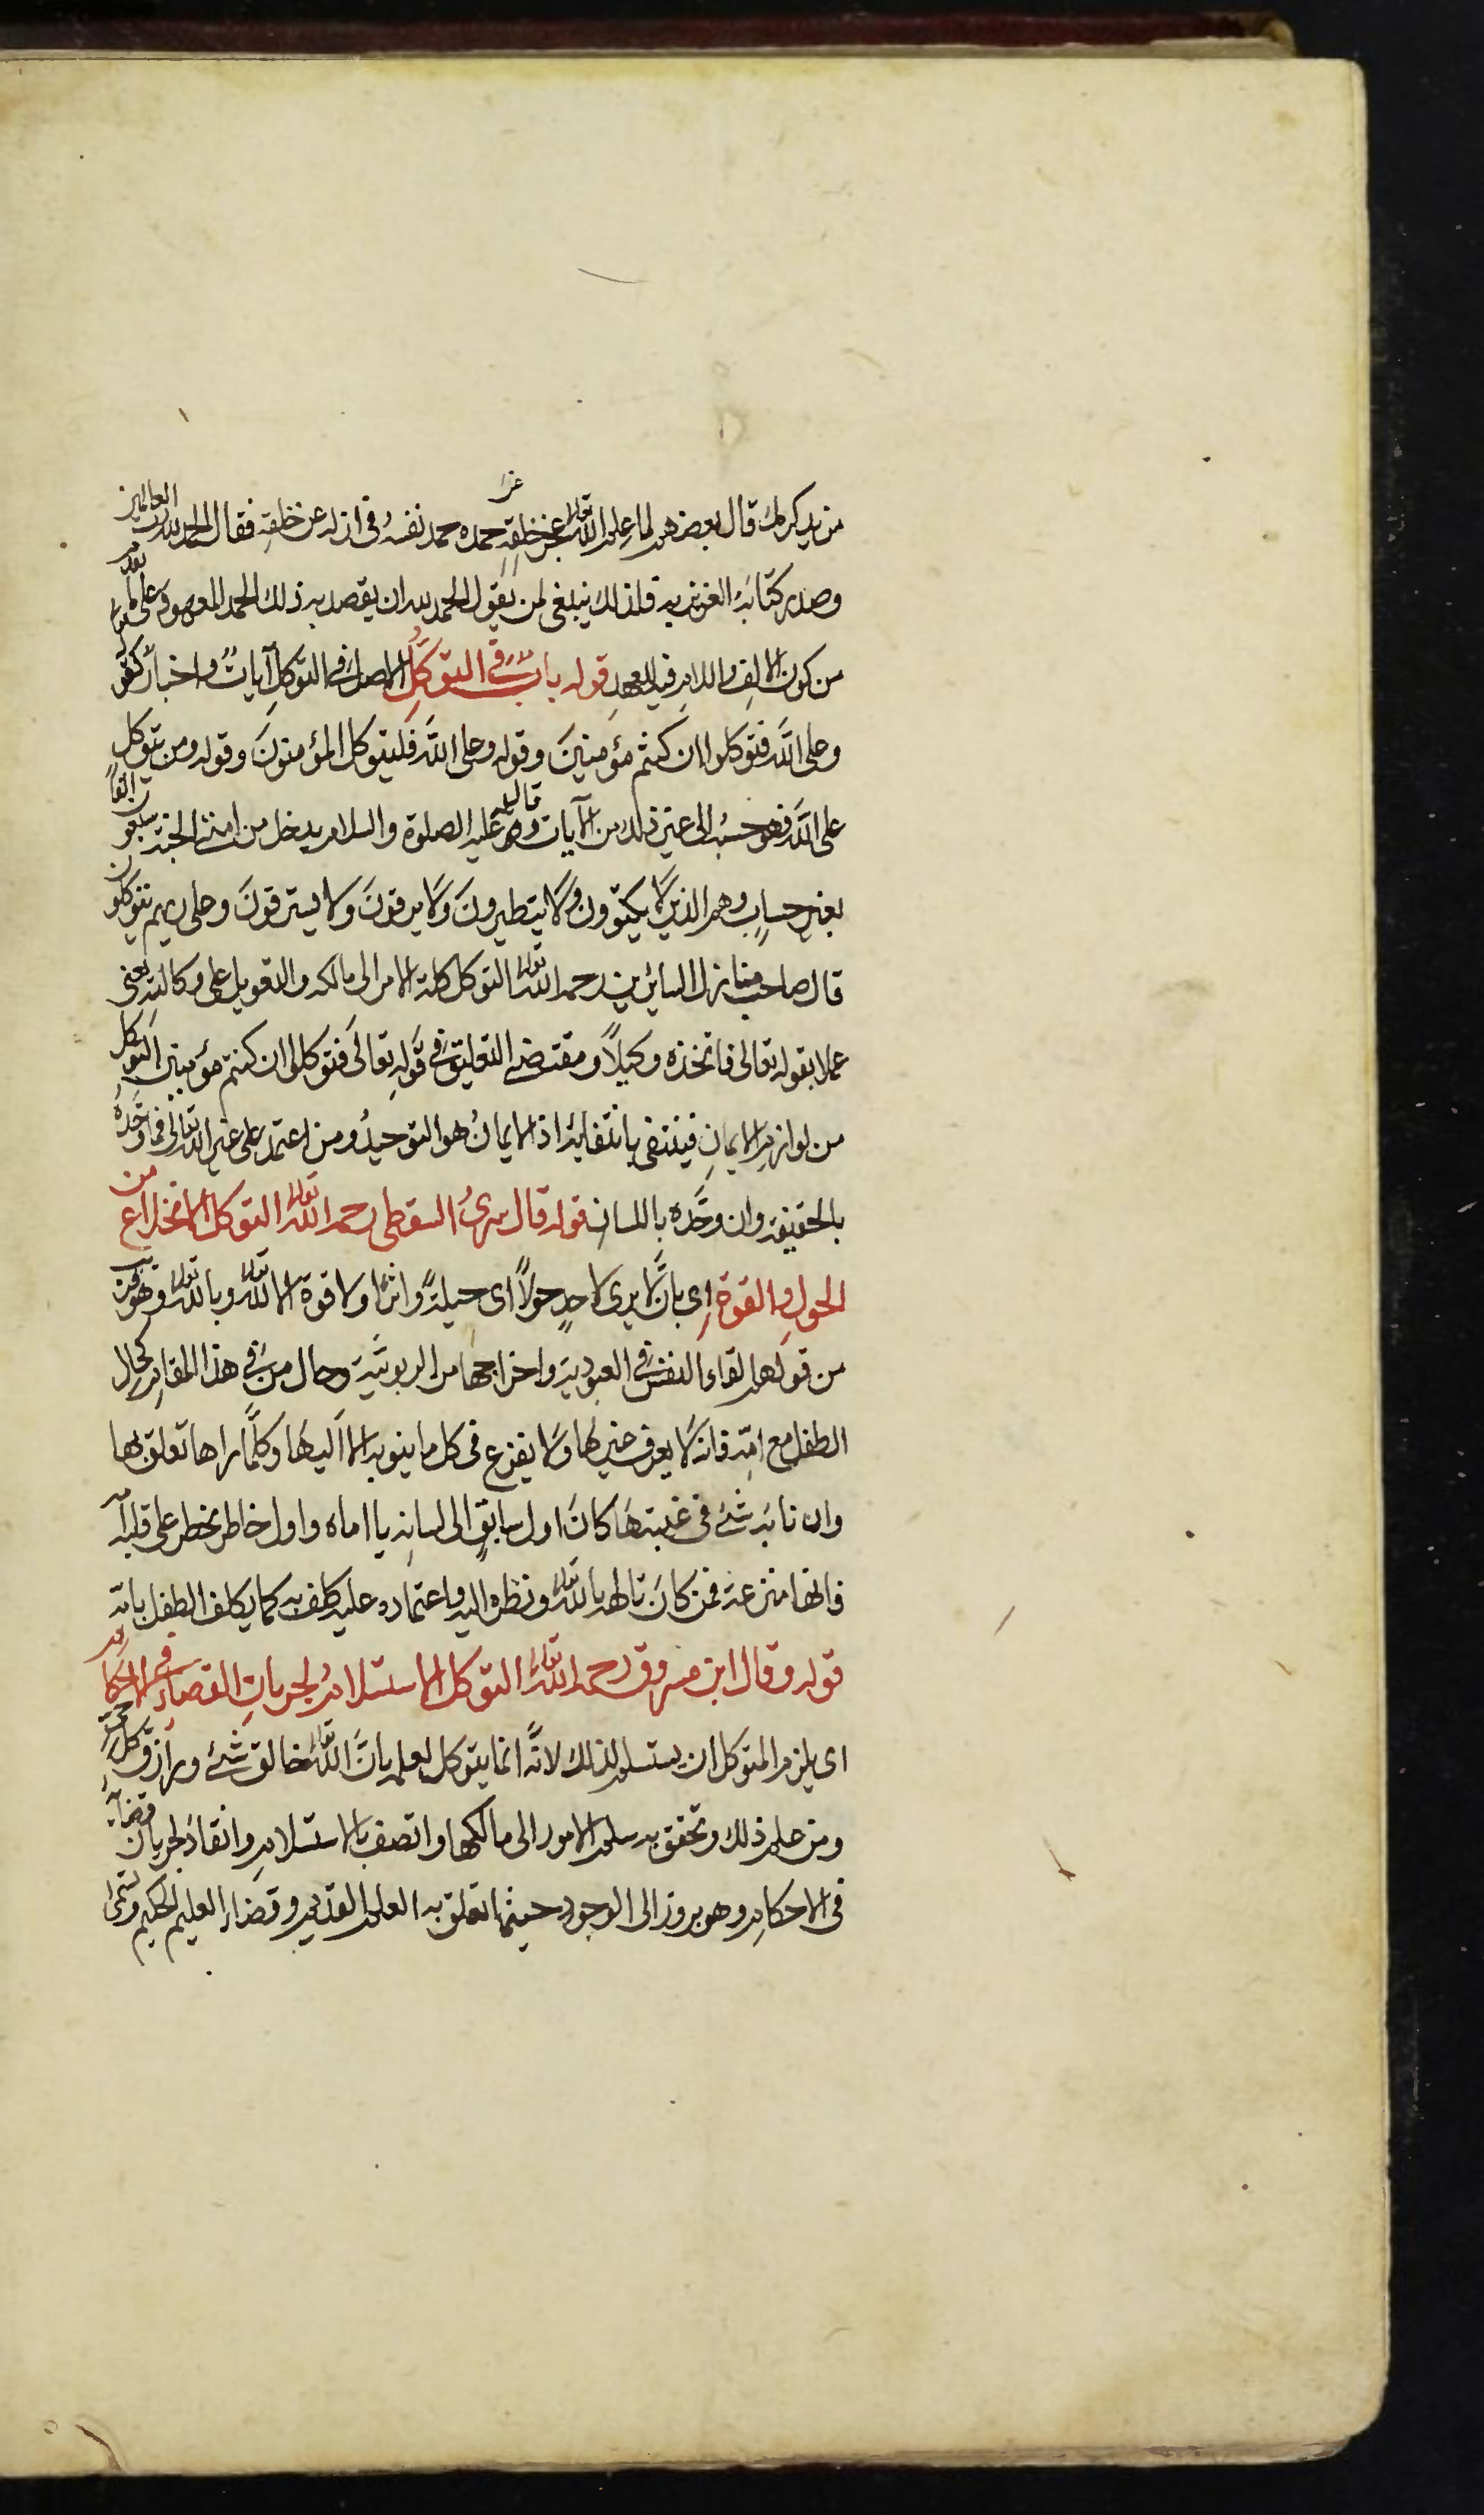 مزيد كرمك قال بعضهم لما علم الله تعالى عجز خلقه عن حمده حمد نفسه في ازله عن خلقه فقال الحمد لله رب العالمين
وصدر كتابه العزيز به فلذلك ينبغي لمن يقول الحمد لله ان يقصد به ذلك الحمد المعهود على ما تقدم
من كون الالف واللام فيه للعهد قوله باب في التوكل الاصل في التوكل آيات واخبار كقوله
وعلى الله فتوكلوا ان كنتم مؤمنين وقوله وعلى الله فليتوكل المؤمنون وقوله ومن يتوكل
على الله فهو حسبه الى غير ذلك من الآيات وقال عليه الصلوة والسلام يدخل من امتي الجنة سبعون الفا
بغير حساب وهم الذين لا يكتوون ولا يتطيرون ولا يرقون ولا يسترقون وعلى ربهم يتوكلون
قال صاحب منازل السائرين رحمه الله تعالى التوكل كلة الامر الى مالكه والتعويل على وكالته يعني
عملا بقوله تعالى فاتخذه وكيلاً ومقتضى التعليق في قوله تعالى فتوكلوا ان كنتم مؤمنين ان التوكل
من لوازم الايمان فينتفي بانتفايه اذ الايمان هو التوحيد ومن اعتمد على غير الله تعالى فما وحّده
بالحقيقة وان وحّده باللسان قوله قال سري السقطي رحمه الله تعالى التوكل الانخلاع من
الحول والقوة اي بان لا يرى لاحدٍ حولاً اى حيلةً واثرا ولا قوة الا لله تعالى وبالله تعالى وهو قريب
من قولهم القاء النفس في العبودية واخراجها من الربوبية وحال من في هذا المقام كحال
الطفل مع امّه فانه لا يعرف غيرها ولا يفزع في كل ما ينوبه الا اليها وكلّما راها تعلق بها
وان نابه شئ في غيبتها كان اول سابق الى لسانه يا اماه واول خاطر يخطر على قلبه امه
فانها مفزعه فمن كان تالهه بالله تعالى ونظره اليه واعتماده عليه كلف به كما يكلف الطفل بامه
قوله وقال ابن مسروق رحمه الله تعالى التوكل الاستسلام لجريان القضاء في الاحكام
اى يلزم المتوكل ان يستسلم لذلك لانّه انما يتوكل لعلمه بانّ الله تعالى خالق كل شئ ورازق كل حي
ومن علم ذلك وتحقق به سلم الامور الى مالكها واتصف بالاستسلام وانقاد لجريان قضائه
في الاحكام وهو بروز الى الوجود حيثما تعلق به العلم القديم وقضاء العليم الحكيم